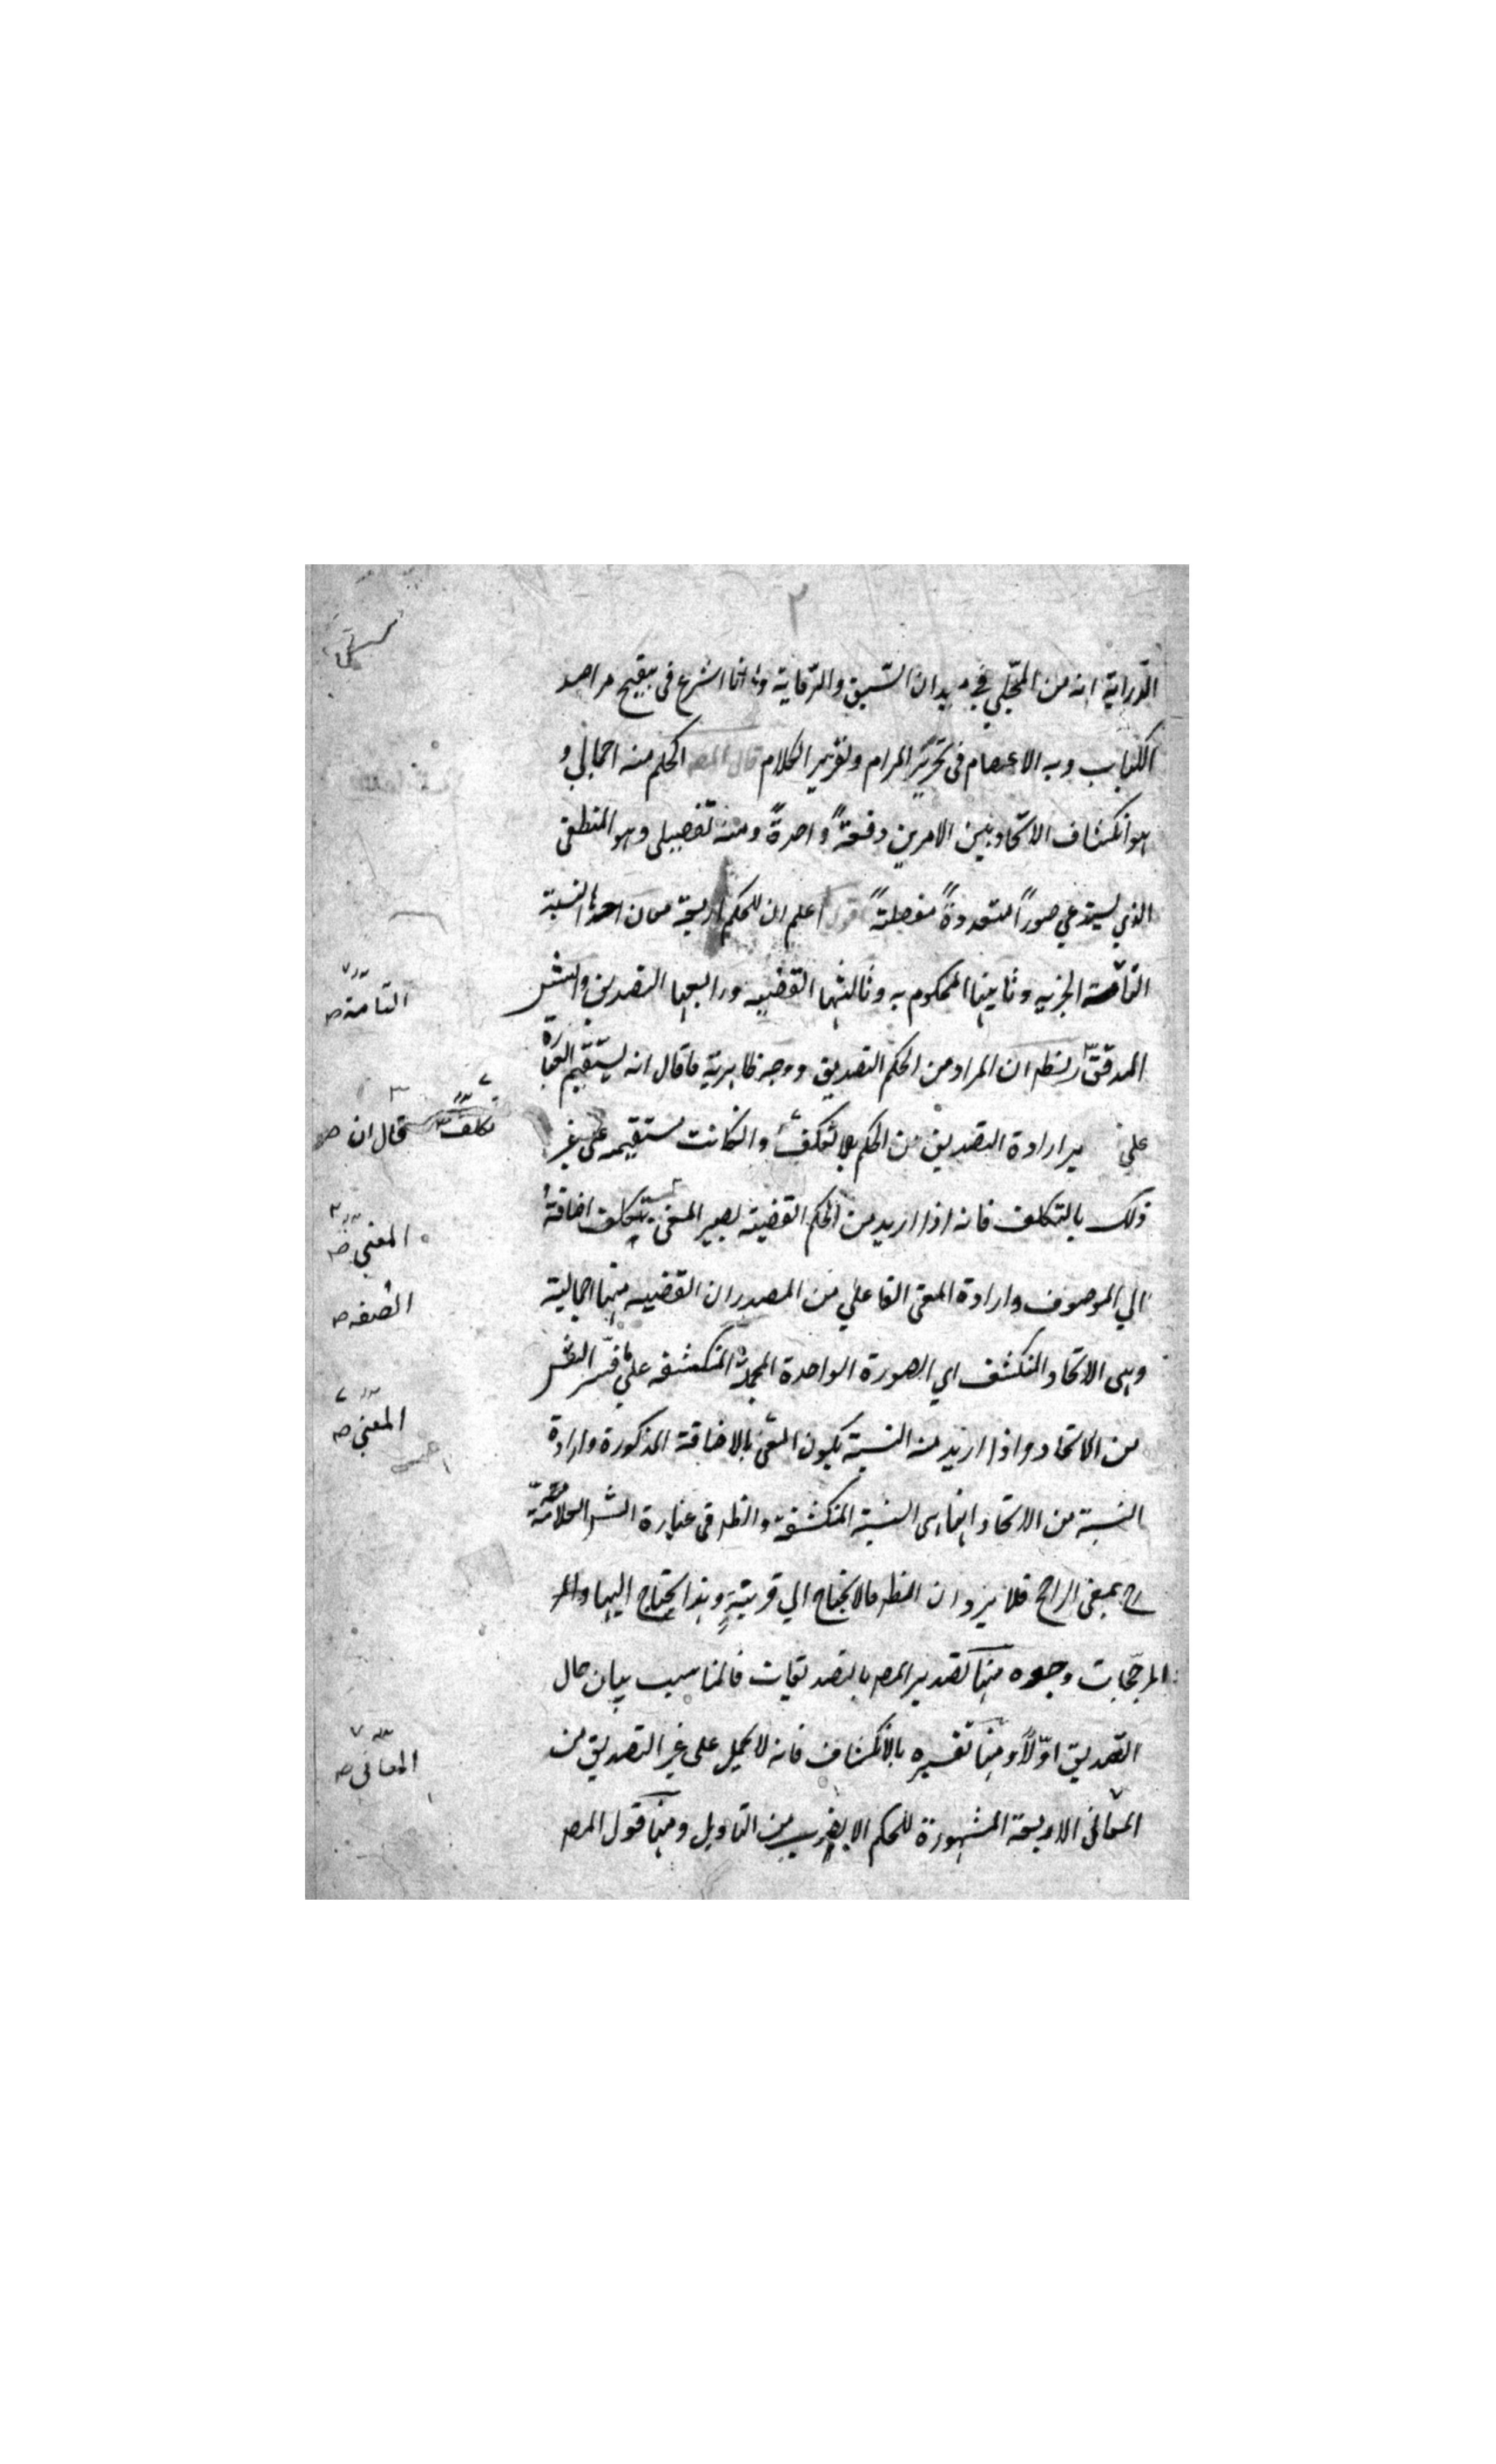 ٢
الدّراية انه من المجلّي في ميدان السّبق والرّقاية وها انا اشرع في تنقيح مراصد
الكتاب وبه الاعتصام في تحرير المرام وتقرير الكلام قال المصـ الحكم منه اجمالي و
هو انكشاف الاتحاد بين الامرين دفعةً واحدةً ومنه تفصيلي وهو المنطقي
الذي يستدعي صوراً متعددةً مفصلةً قوله اعلم ان للحكم اربعة معان احدها النسبة
التامة الخبرية وثانيها المحكوم به وثالثها القضيه ورابعها التصديق والشـ
المدقق ان المراد من الحكم التصديق ووجه ظاهريته ما قال انه يستقيم العبارة
على ارادة التصديق من الحكم بلا تكلف وان كانت مستقيمه على غير
ذلك بالتكلف فانه اذا اريد من الحكم القضية يصير المعنى بتكلف اضافة
الي الموصوف وارادة المعنى الفاعلي من المصدر ان القضيه منها اجمالية
وهي الاتحاد المنكشف اي الصورة الواحدة المجملة المنكشفه على ما فسّر الشـ
من الاتحاد واذا اريد منه النسبة يكون المعنى بالاضافة المذكورة وارادة
النسبة من الاتحاد انها هي النسبة المنكشفة والظـ في عبارة الشـ العلامة
رح بمعنى الراجح فلا يرد ان الظـ ما لا يحتاج الي قرينةٍ وهذا يحتاج اليها و
المرجّحات وجوه منها تصدير المصـ بالتصديقات فالمناسب بيان حال
التصديق اوّلاً ومنها تفسيره بالانكشاف فانه لا يحمل على غير التصديق من
المعانى الاربعة المشهورة للحكم الا بضرب من التاويل ومنها قول المصـ
التامة صـ
تكلف
قال ان صـ
المعنى صـ
الصفه صـ
المعنى صـ
المعانى صـ